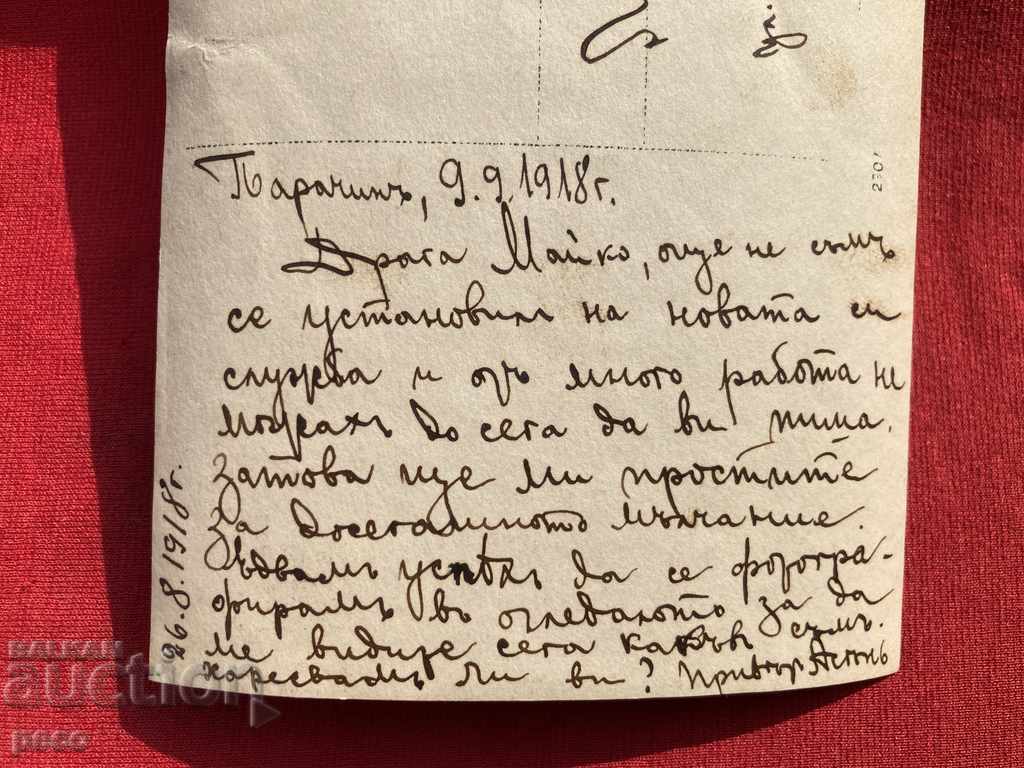 Парачинъ, 9.9.1918 г.
Драга Майко, още не съмъ
се установилъ на новата си
служба и отъ много работа не
можахъ до сега да ви пиша.
Затова ще ми простите
за досегашното мълчание.
Едвамъ успѣхъ да се фотогра-
фирамъ въ огледалото за да
ме видите сега какъвъ съмъ.
Харесвамъ ли ви?
26.8.1918 г.
BALKAN
auction
peso